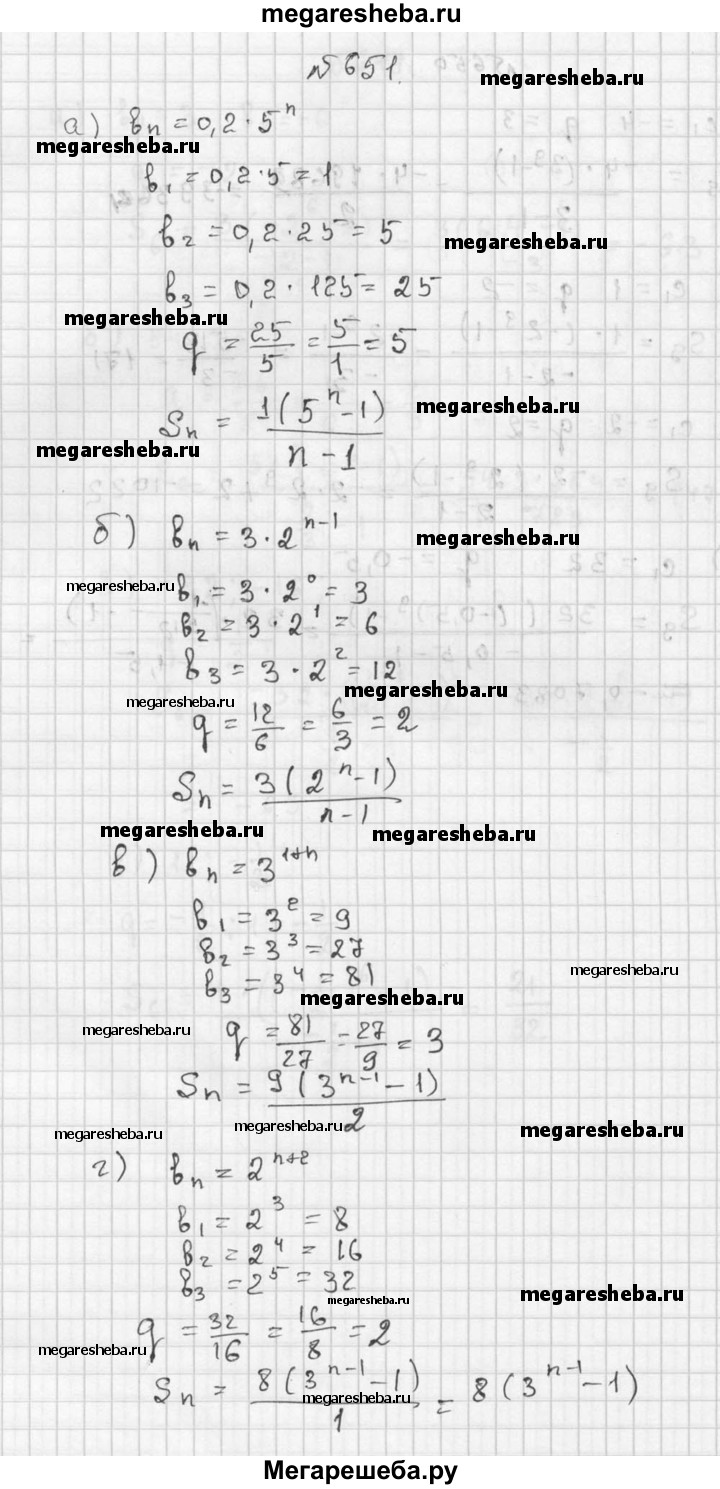 megaresheba.ru
№651.
megaresheba.ru
а) bn = 0,2 · 5^n
megaresheba.ru
b1 = 0,2 · 5 = 1
b2 = 0,2 · 25 = 5
megaresheba.ru
b3 = 0,2 · 125 = 25
megaresheba.ru
q = 25/5 = 5/1 = 5
Sn = 1(5^n - 1)/(n - 1)
megaresheba.ru
megaresheba.ru
б) bn = 3 · 2^(n-1)
megaresheba.ru
megaresheba.ru
b1 = 3 · 2^0 = 3
b2 = 3 · 2^1 = 6
b3 = 3 · 2^2 = 12
megaresheba.ru
megaresheba.ru
q = 12/6 = 6/3 = 2
Sn = 3(2^n - 1)/(n - 1)
megaresheba.ru
megaresheba.ru
в) bn = 3^(1+n)
b1 = 3^2 = 9
b2 = 3^3 = 27
b3 = 3^4 = 81
megaresheba.ru
megaresheba.ru
megaresheba.ru
q = 81/27 = 27/9 = 3
Sn = 9(3^(n-1) - 1)/2
megaresheba.ru
megaresheba.ru
megaresheba.ru
г) bn = 2^(n+2)
b1 = 2^3 = 8
b2 = 2^4 = 16
b3 = 2^5 = 32
megaresheba.ru
megaresheba.ru
q = 32/16 = 16/8 = 2
megaresheba.ru
Sn = 8(3^(n-1) - 1)/1 = 8(3^(n-1) - 1)
megaresheba.ru
Мегарешеба.ру